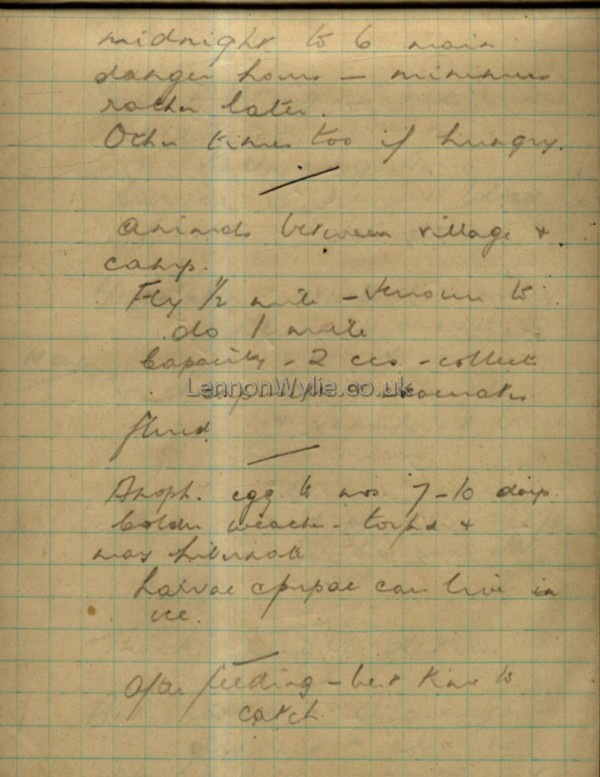 midnight to 6 main
danger hours – minimus
rather later.
Other times too if hungry.
Animals between village &
camp.
Fly 1/2 mile – known to
do 1 mile
Capacity – 2 ccs – collect
LennonWylie.co.uk
fluid
Anoph. egg to mos. 7–10 days.
Colder weather – torpid &
may hibernate
Larvae & pupae can live in
ice.
After feeding – best time to
catch